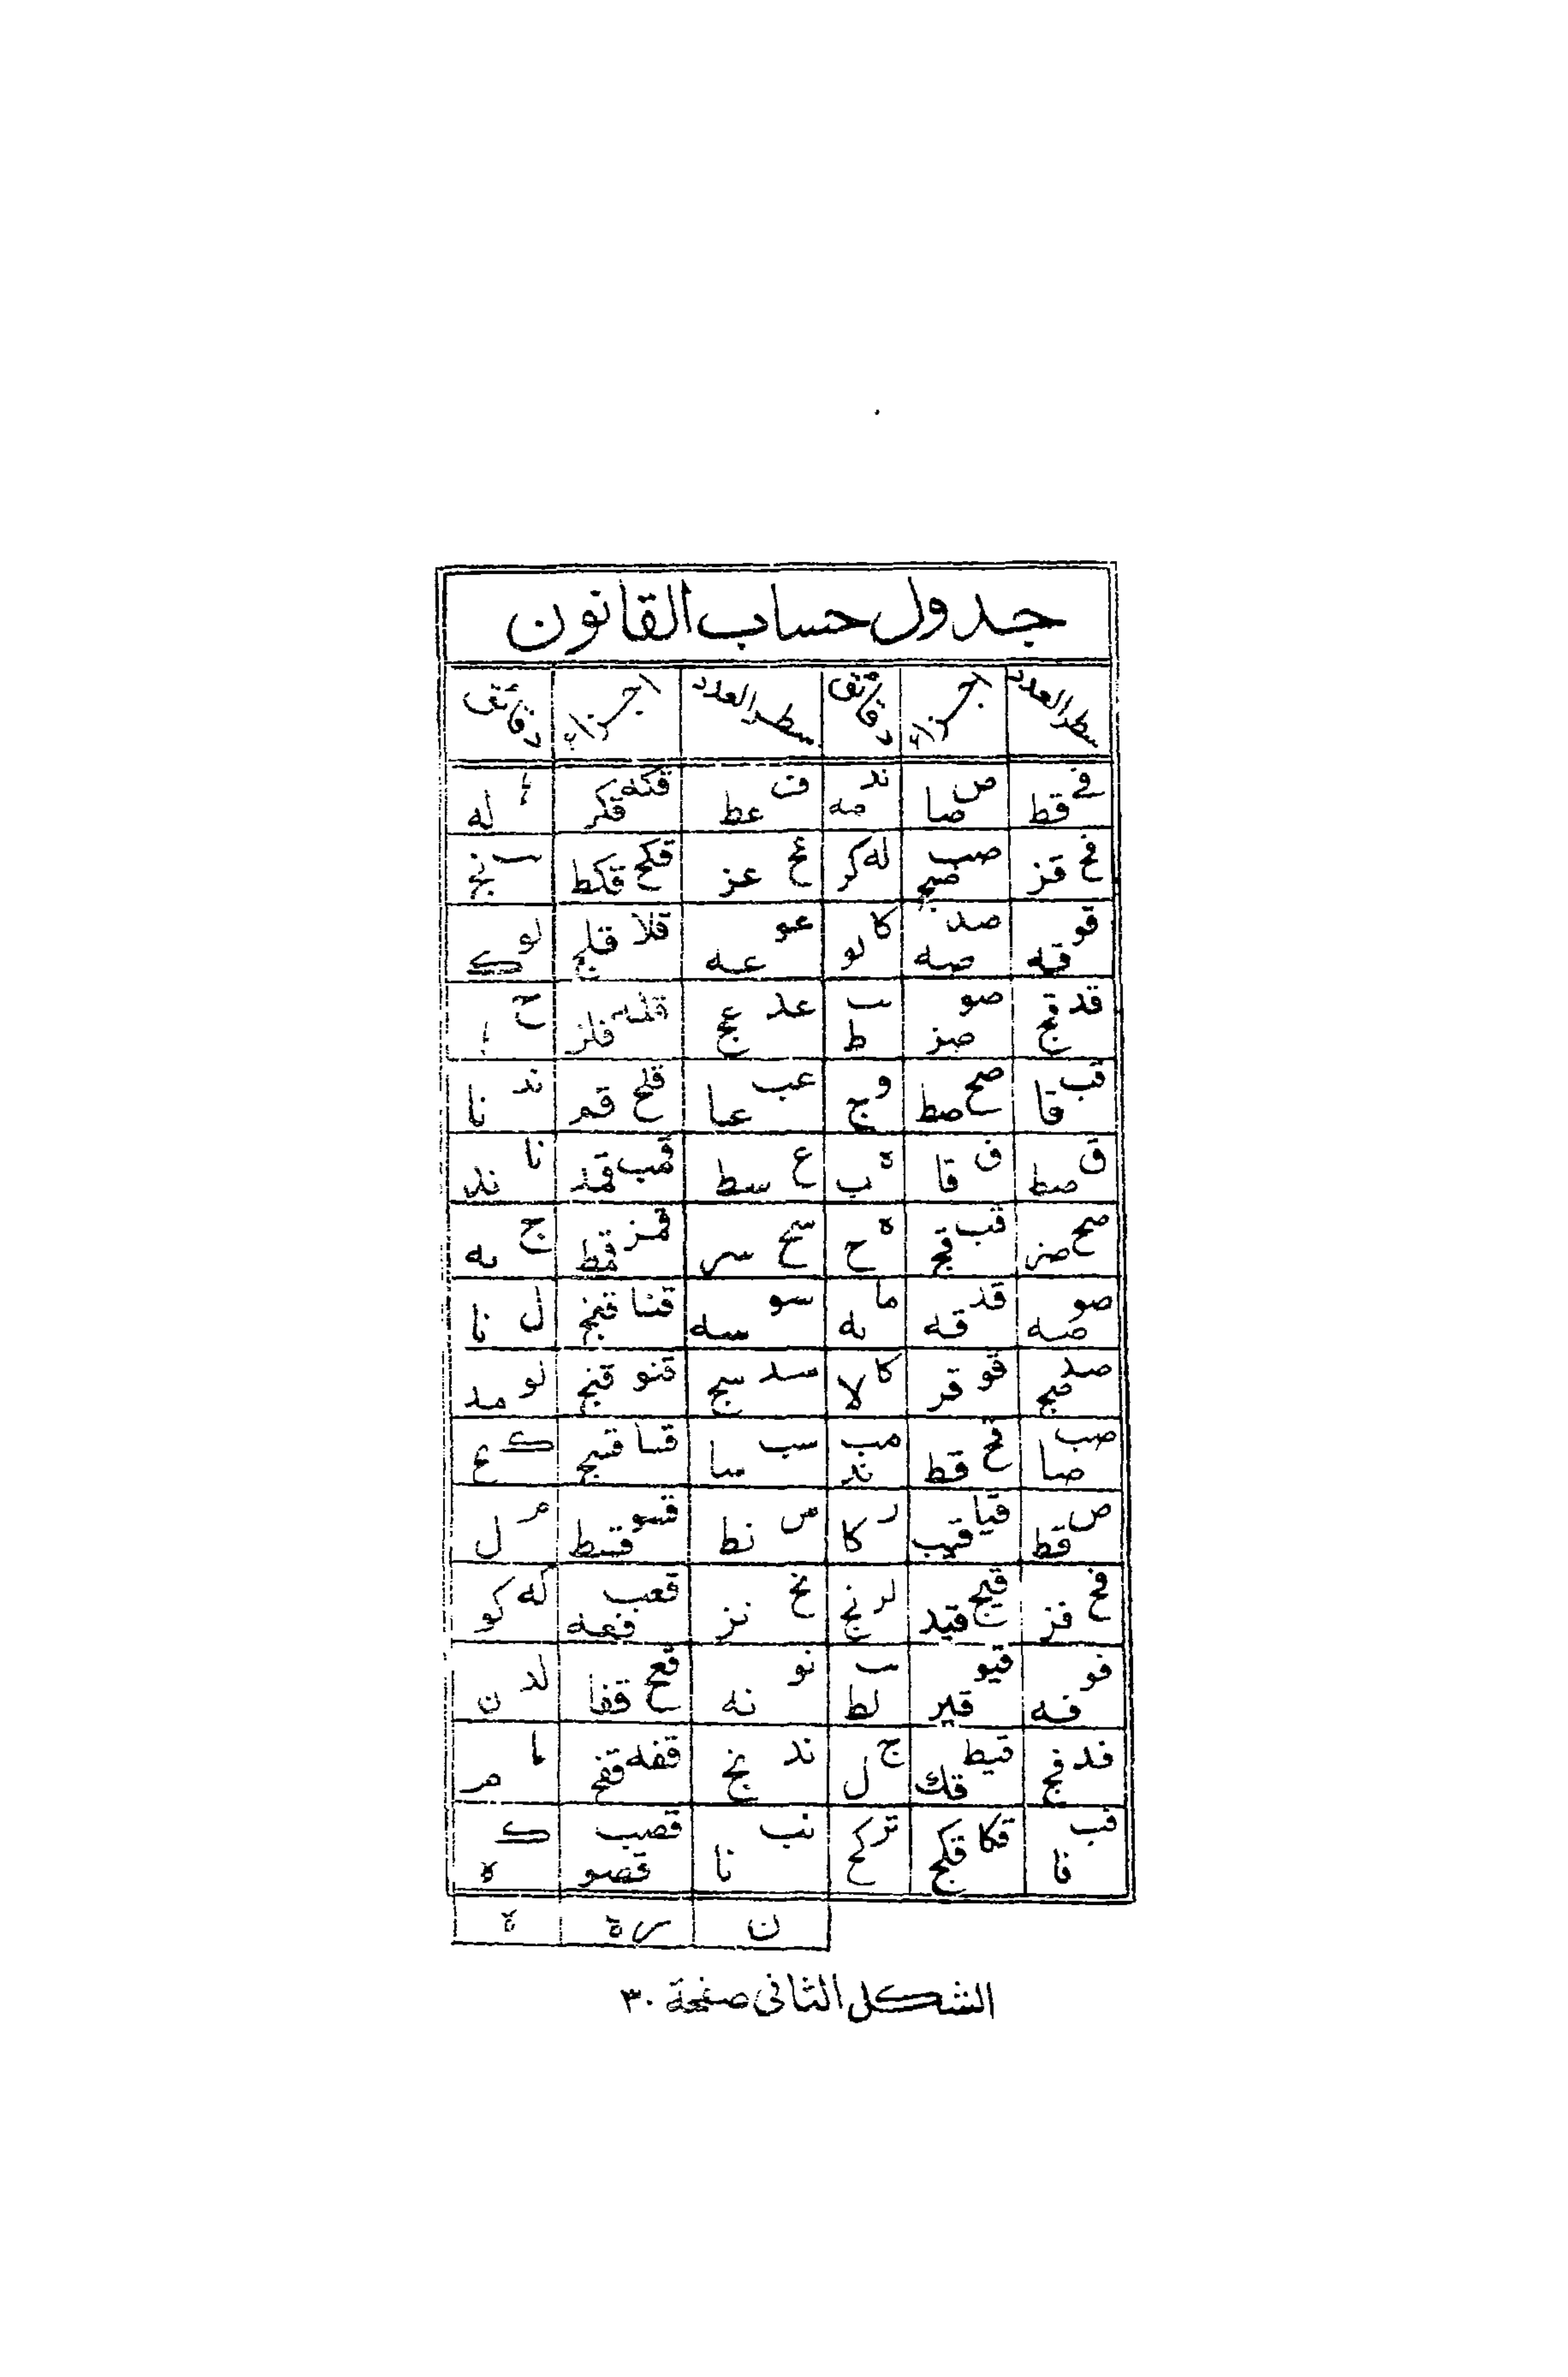 جدول حساب القانون
سطر العدد اجزاء دقائق سطر العدد اجزاء دقائق
قط ص صا ند مه ف عط قكه قكز له
قح قز صب صج له كز عح عز قكح قكط ب نج
قو قه صد صه كا لو عو عه قلا قلج لو ك
قد قج صو صز ب ط عد عج قله قلز ح
قب قا صح صط و ج عب عا قلح قم ند نا
ق صط ق قا ه ب ع سط قمب قمد نا ند
صح صز قب قج ه ح سح سز قمز قمط ج نه
صو صه قد قه ما نه سو سه قنا قنج ل نا
صد صج قو قز كا لا سد سج قنو قنح نو مد
صب صا قح قط مب ند سب سا قسا قسج ك
ص فط قيا قيب ز كا س نط قسو قسط م ل
فح فز قيج قيد لز نج نح نز قعب قعه كه كو
فو فه قيو قيز ب لط نو نه قعح قفا لد ن
فد فج قيط قك ج ل ند نج قفه قفح م
فب فا قكا قكج نز كح نب نا قصب قصو ك ه
ن ه
الشكل الثانى صفحة ٣٠